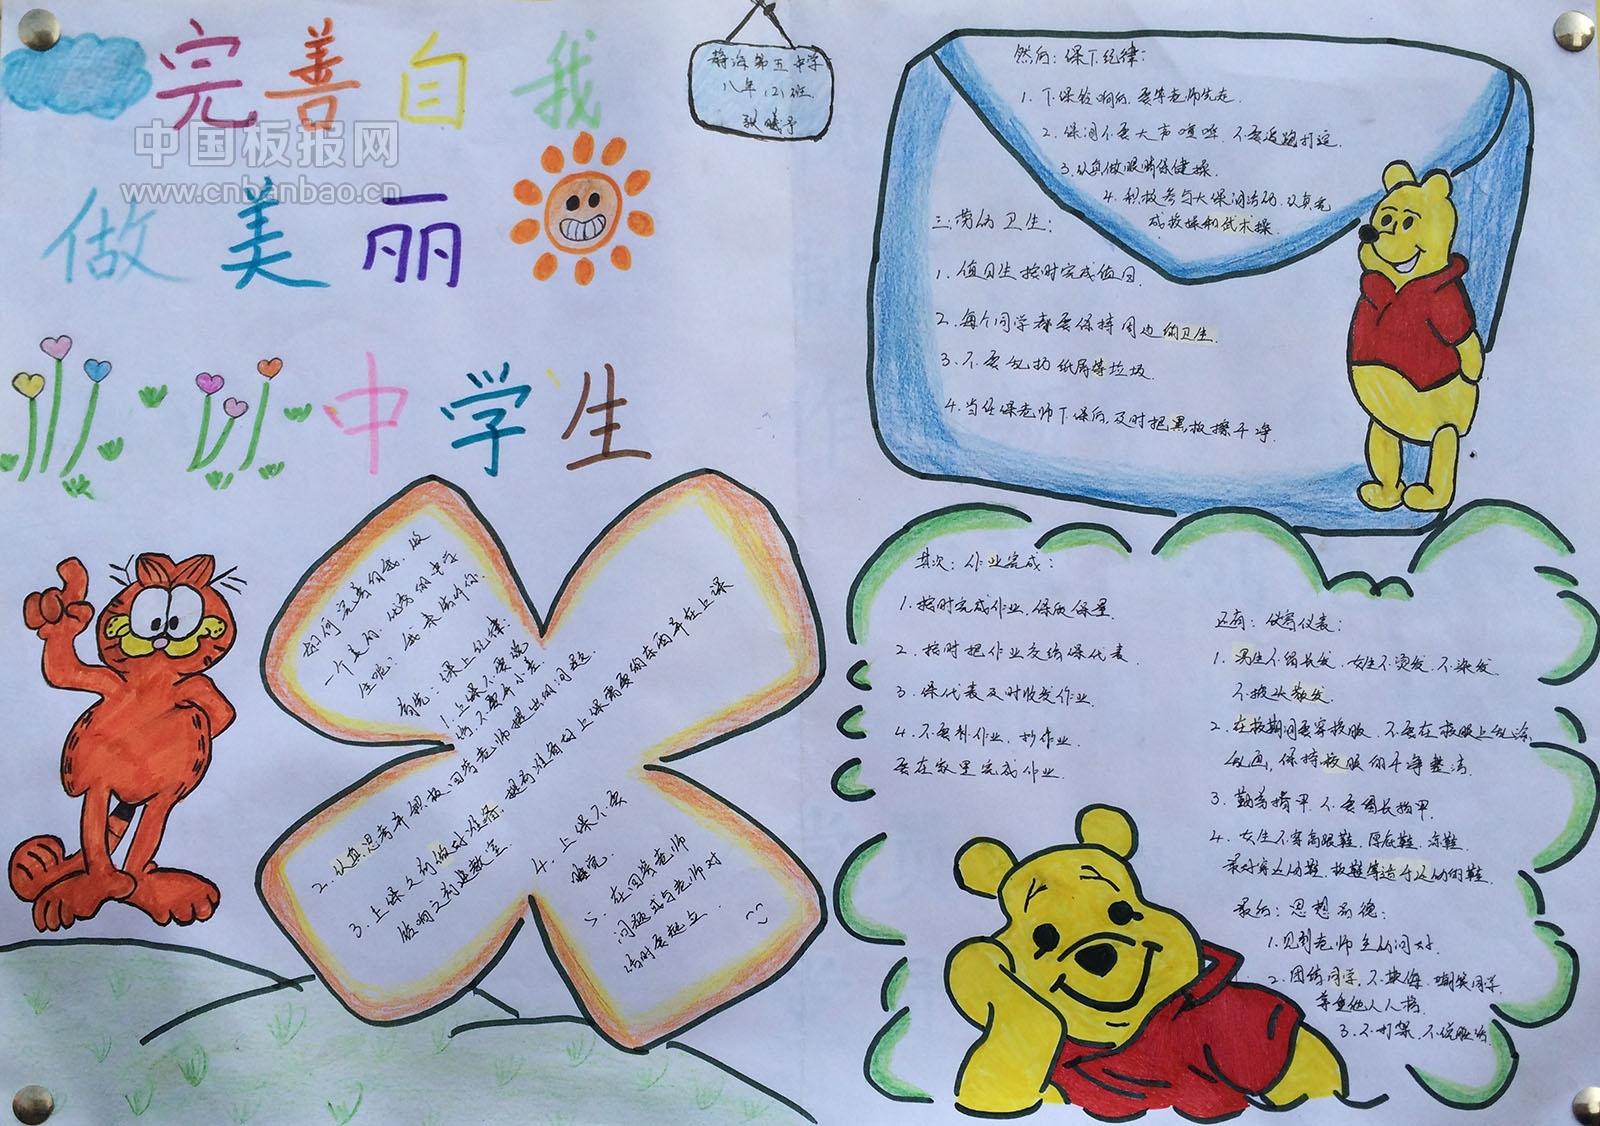 完善自我
做美丽
中学生
中国板报网
www.cnbanbao.cn
静海第五中学
八年(2)班
张曦予
如何完善自我、做
一个美的、优秀的中学
生呢：我来告诉你.
首先：课上纪律：
1.上课不要说
话,不要开小差.
2.认真思考并积极回答老师提出的问题.
3.上课之前做好准备.提前准备好上课需要的东西并在上课
铃响之前进教室.
4.上课不要
睡觉.
5.在回答老师
问题或与老师对
话时要起立.
然后：课下纪律：
1.下课铃响后,要等老师先走.
2.课间不要大声喧哗,不要追跑打逗.
3.认真做眼睛保健操.
4.积极参与大课间活动,认真完
成校操和武术操.
三.劳动卫生：
1.值日生按时完成值日.
2.每个同学都要保持周边的卫生.
3.不要乱扔纸屑等垃圾.
4.当任课老师下课后,及时把黑板擦干净.
其次：作业完成：
1.按时完成作业,保质保量.
2.按时把作业交给课代表.
3.课代表及时收发作业.
4.不要补作业,抄作业.
要在家里完成作业.
还有：仪容仪表：
1.男生不留长发,女生不烫发,不染发
不披头散发.
2.在校期间要穿校服,不要在校服上乱涂
乱画,保持校服的干净整洁.
3.勤剪指甲,不要留长指甲.
4.女生不穿高跟鞋,厚底鞋,凉鞋.
最好穿运动鞋,板鞋等适于运动的鞋.
最后：思想品德：
1.见到老师主动问好.
2.团结同学,不欺侮、嘲笑同学,
尊重他人人格.
3.不打架,不说脏话.